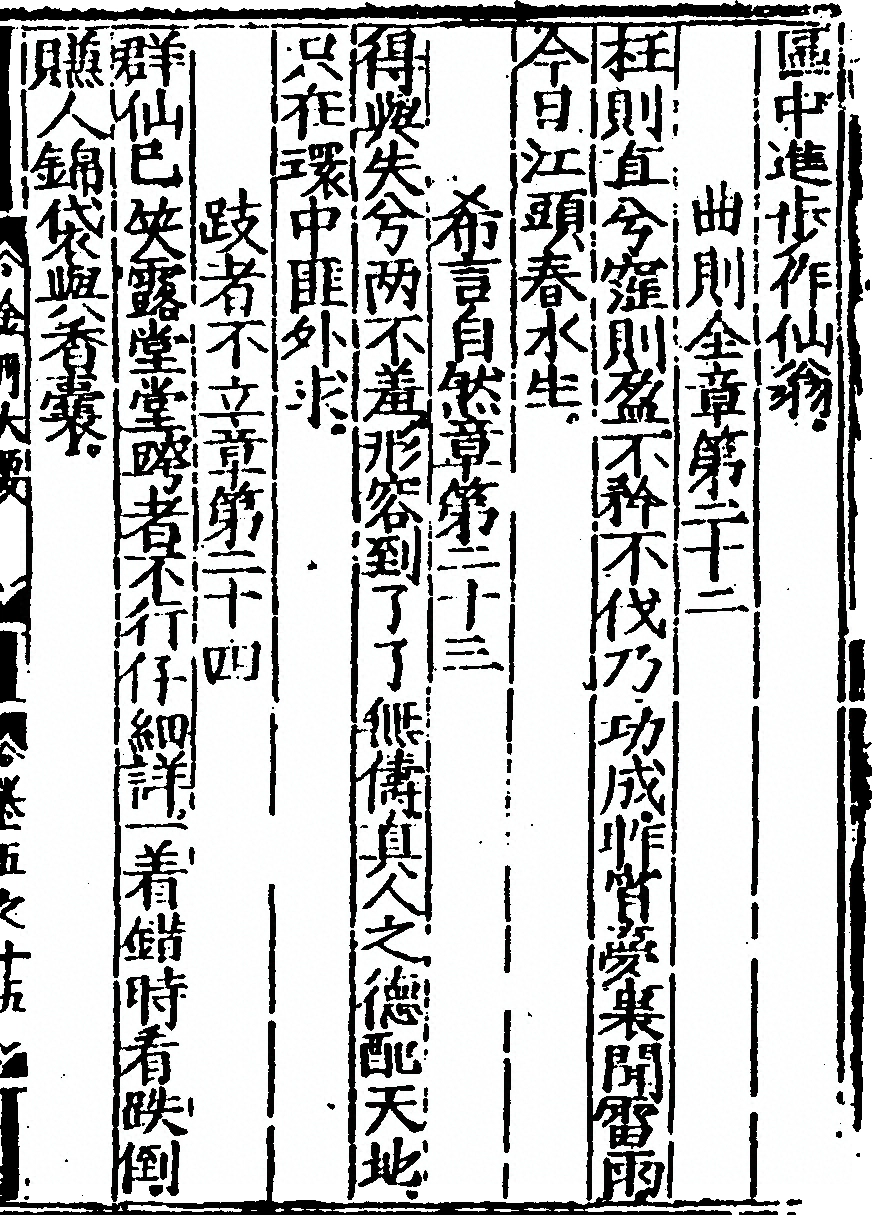 圖中進步作仙翁
曲則全章第二十二
枉則直兮窪則盈不矜不伐乃功成昨宵夢裏聞雷雨
今日江頭春水生
希言自然章第二十三
得與失兮两不羞形容到了了無儔真人之德配天地
只在環中匪外求
跂者不立章第二十四
群仙已缺露堂堂跨者不行仔細詳一着錯時看跌倒
賺人錦袋與香囊
金門大要 卷五之十五